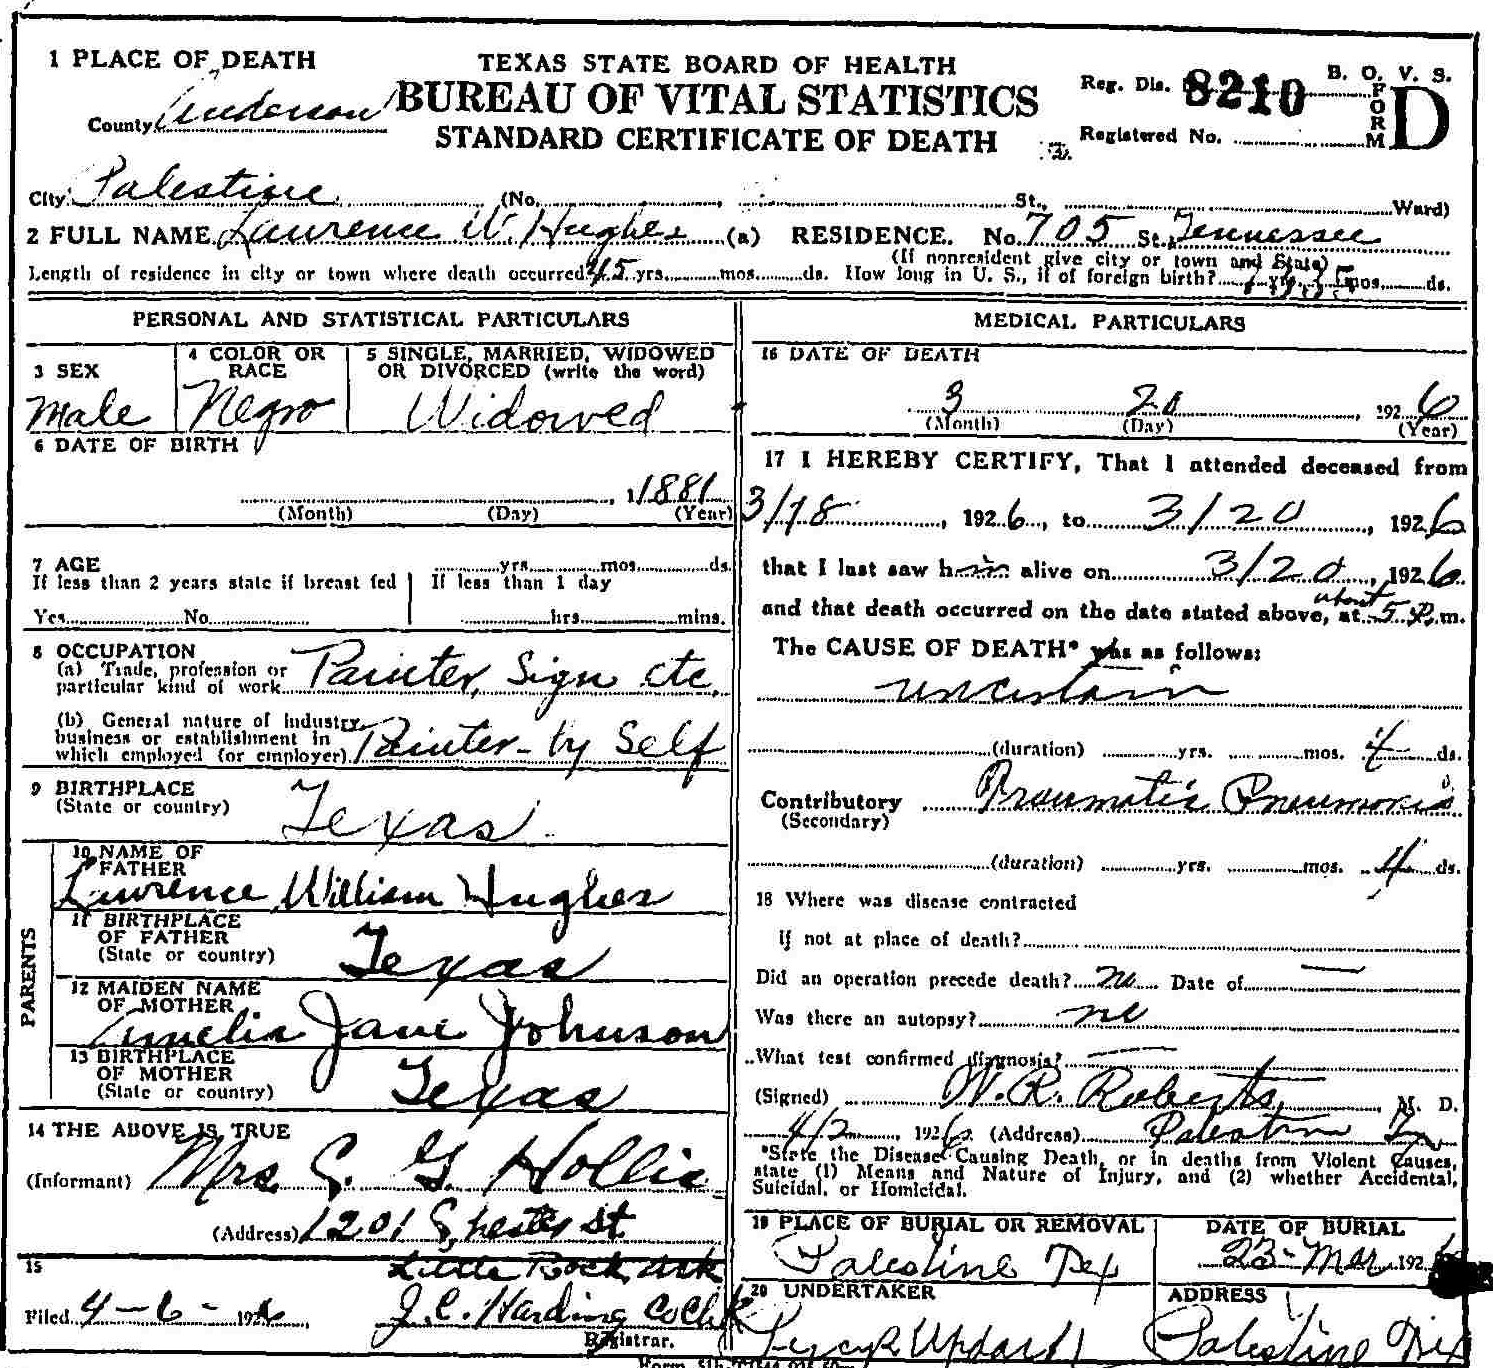 1 PLACE OF DEATH
TEXAS STATE BOARD OF HEALTH
BUREAU OF VITAL STATISTICS
STANDARD CERTIFICATE OF DEATH
Reg. Dis. 8210
B. O. V. S.
FORM D
County Anderson
Registered No.
City Palestine (No. St., Ward)
2 FULL NAME Laurence W. Hughes (a) RESIDENCE. No. 705 St., Tennessee
(If nonresident give city or town and State)
Length of residence in city or town where death occurred 45 yrs. mos. ds. How long in U. S., if of foreign birth? yrs. mos. ds.
PERSONAL AND STATISTICAL PARTICULARS
3 SEX
Male
4 COLOR OR RACE
Negro
5 SINGLE, MARRIED, WIDOWED
OR DIVORCED (write the word)
Widowed
6 DATE OF BIRTH
1881
(Month) (Day) (Year)
7 AGE yrs. mos. ds.
If less than 2 years state if breast fed
Yes No
If less than 1 day
hrs. mins.
8 OCCUPATION
(a) Trade, profession or
particular kind of work Painter, Sign etc.
(b) General nature of industry
business or establishment in
which employed (or employer) Painter - by Self
9 BIRTHPLACE
(State or country) Texas
PARENTS
10 NAME OF
FATHER
Lawrence William Hughes
11 BIRTHPLACE
OF FATHER
(State or country) Texas
12 MAIDEN NAME
OF MOTHER
Amelia Jane Johnson
13 BIRTHPLACE
OF MOTHER
(State or country) Texas
14 THE ABOVE IS TRUE
(Informant) Mrs. G. Hollis
(Address) 1201 St
Little Rock, Ark
15
Filed 4-6-1926 J.C. Harding Co Clk
Registrar.
MEDICAL PARTICULARS
16 DATE OF DEATH
3 20, 1926
(Month) (Day) (Year)
17 I HEREBY CERTIFY, That I attended deceased from
3/18, 1926, to 3/20, 1926
that I last saw him alive on 3/20, 1926
and that death occurred on the date stated above, at about 5 P.m.
The CAUSE OF DEATH* was as follows:
uncertain
(duration) yrs. mos. 4 ds.
Contributory Pneumonia
(Secondary)
(duration) yrs. mos. 4 ds.
18 Where was disease contracted
if not at place of death?
Did an operation precede death? no Date of
Was there an autopsy? no
What test confirmed diagnosis?
(Signed) W. R. Roberts, M. D.
4/2, 1926 (Address) Palestine Tex
*State the Disease Causing Death, or in deaths from Violent Causes,
state (1) Means and Nature of Injury, and (2) whether Accidental,
Suicidal, or Homicidal.
19 PLACE OF BURIAL OR REMOVAL
Palestine Tex
DATE OF BURIAL
23-Mar 192
20 UNDERTAKER
ADDRESS
Palestine Tex